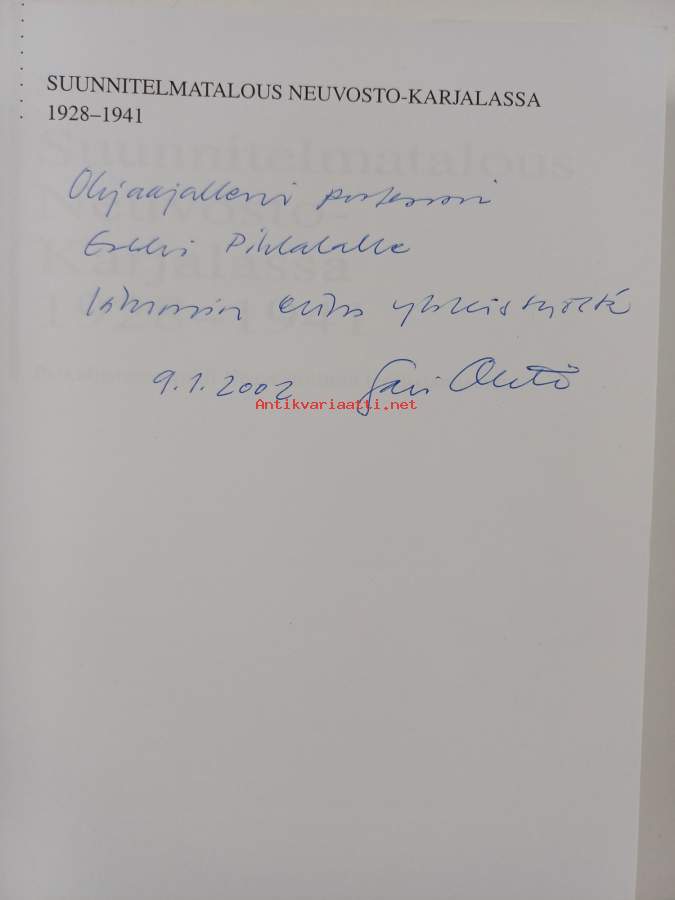 SUUNNITELMATALOUS NEUVOSTO-KARJALASSA
1928–1941
Suunnitelmatalous
Neuvosto-
Karjalassa
Ohjaajalleni professori
Erkki Pihkalalle
lämmin kiitos yhteistyöstä
9.1.2002 Sari Autio
Antikvariaatti.net